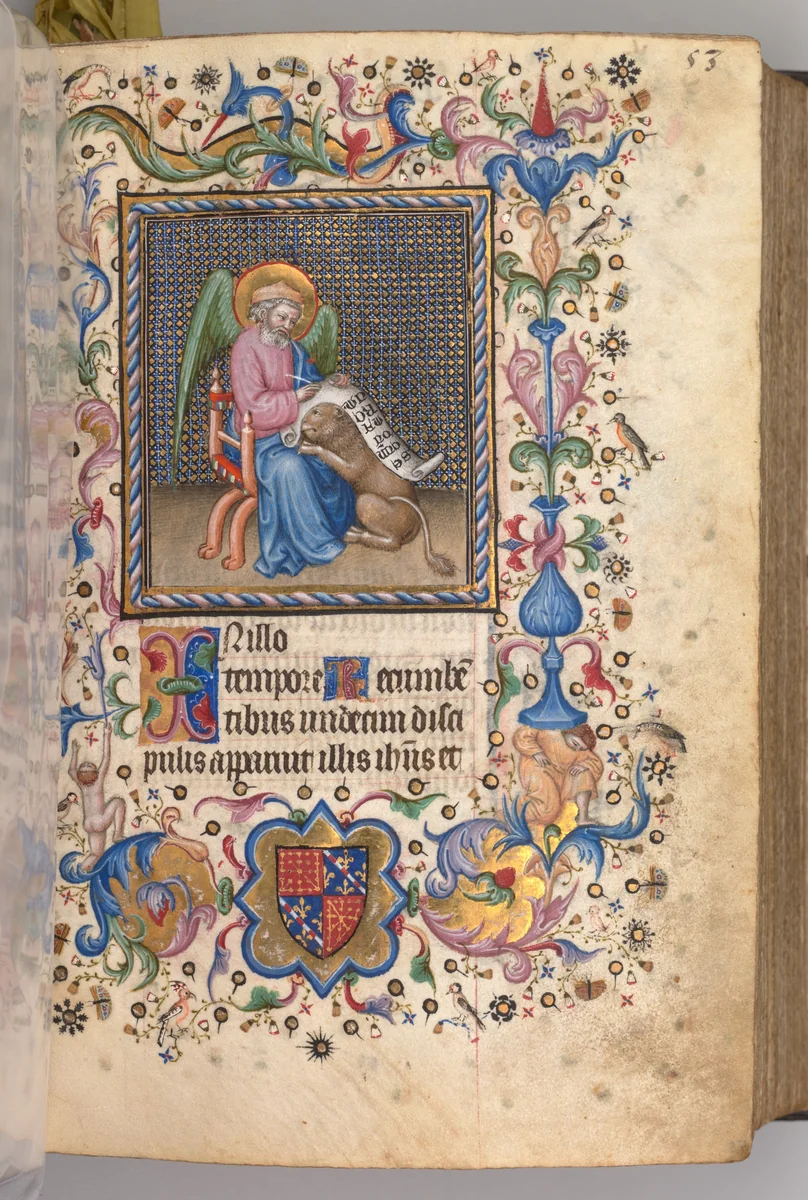 53
N illo
tempore Recumbē
tibus undecim disci
pulis apparuit illis ih̄us et